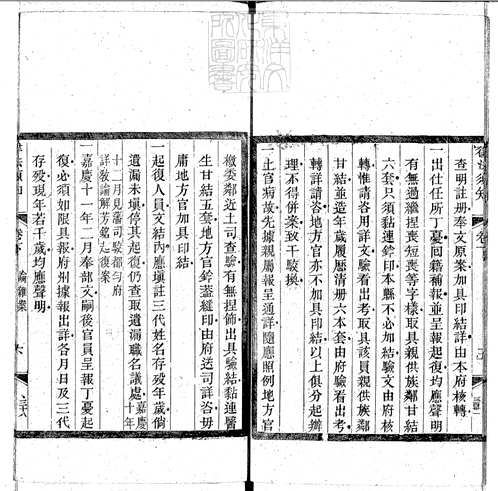 查明註册奉文原案加具印結詳由本府核轉
一出仕任所丁憂回籍補報並呈報起復均應聲明
有無過繼捏喪短喪等字樣取具親供族鄰甘結
六套只須黏連鈐印本縣不必加結驗文由府核
轉惟請咨用詳文驗看出考取具該員親供族鄰
甘結並造年歲履歷清册六本套由府驗看出考
轉詳請咨地方官亦不加具印結以上俱分起辦
理不得併案致干駁換
一土官病故先據親屬報呈通詳隨應照例地方官
檄委鄰近土司查驗有無捏飾出具驗結黏連醫
生甘結五套地方官鈐蓋縫印由府送司詳咨毋
庸地方官加具印結
一起復人員文結內應填註三代姓名存歿年歲倘
遺漏未填停其起復仍查取遺漏職名議處嘉慶十年
十二月見藩司駁都勻府
詳敎諭解芳銘起復案
一嘉慶十一年二月奉部文嗣後官員呈報丁憂起
復必須如限具報府州據報出詳各月日及三代
存歿現年若干歲均應聲明
卷下
論雜案
六